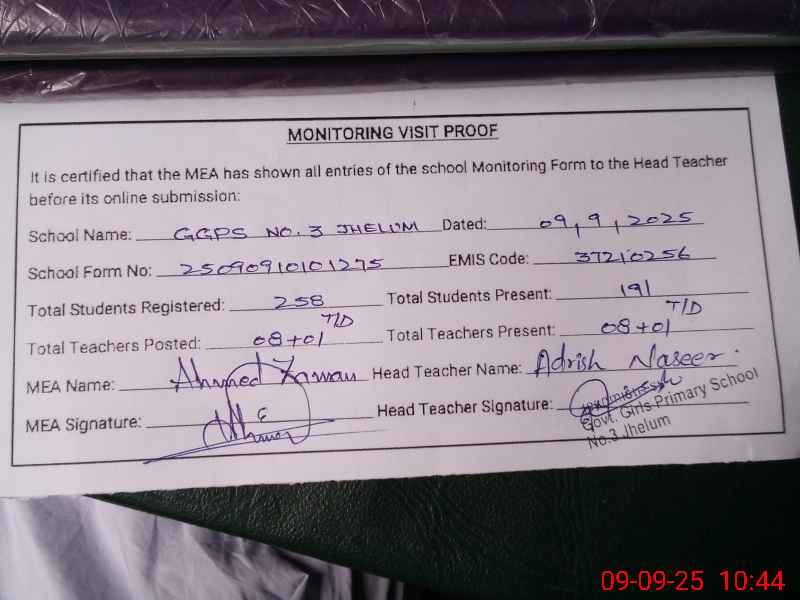 MONITORING VISIT PROOF
It is certified that the MEA has shown all entries of the school Monitoring Form to the Head Teacher
before its online submission:
School Name: GGPS NO. 3 JHELUM Dated: 09, 9, 2025
School Form No: 25090910101275 EMIS Code: 37210256
Total Students Registered: 258 Total Students Present: 191
Total Teachers Posted: 08+01 T/D Total Teachers Present: 08+01 T/D
MEA Name: Ahmed Zaman Head Teacher Name: Adrish Naseer.
MEA Signature: Head Teacher Signature:
Govt. Girls Primary School
No.3 Jhelum
09-09-25 10:44